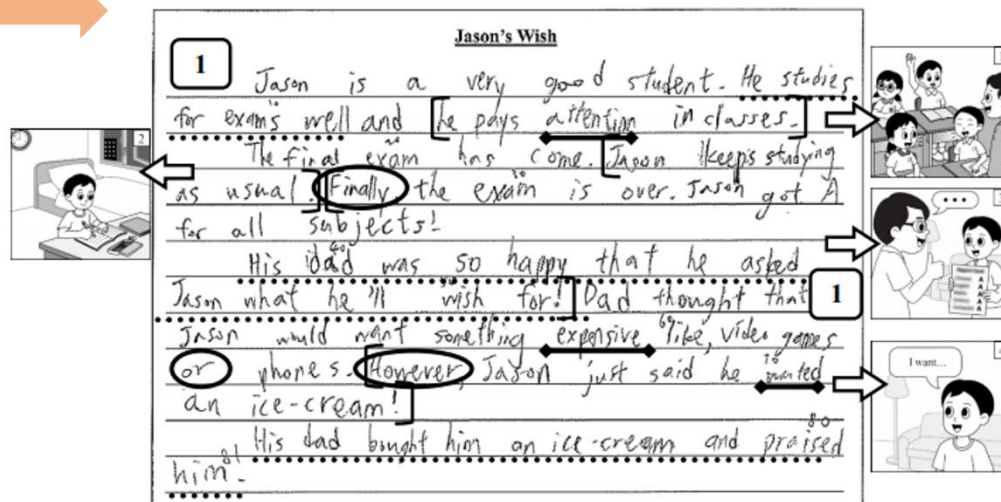 Jason's Wish
1
Jason is a very good student. He studies
for exams well and he pays attention in classes.
10
The final exam has come. Jason keeps studying
20
as usual. Finally, the exam is over. Jason got A
30
for all subjects!
His dad was so happy that he asked
40
Jason what he'll wish for! Dad thought that
1
Jason would want something expensive like, video games
60
or phones. However, Jason just said he wanted
70
an ice-cream!
His dad bought him an ice-cream and praised
80
him!
81
2
...
I want...